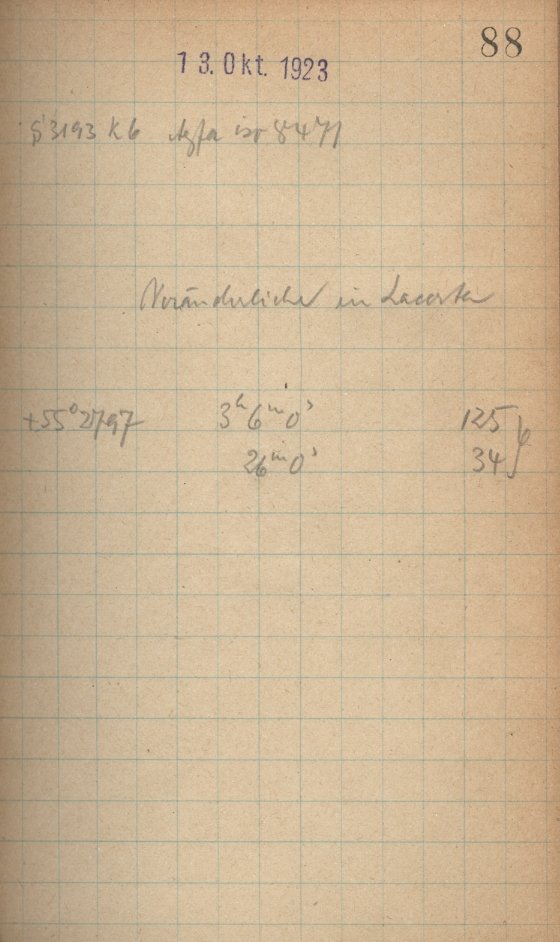 88
13. Okt. 1923
3193 Kb Agfa iso 8471
Veränderliche in Lacerta
+55° 2797 3ʰ 6ᵐ 0ˢ 125
26ᵐ 0ˢ 34